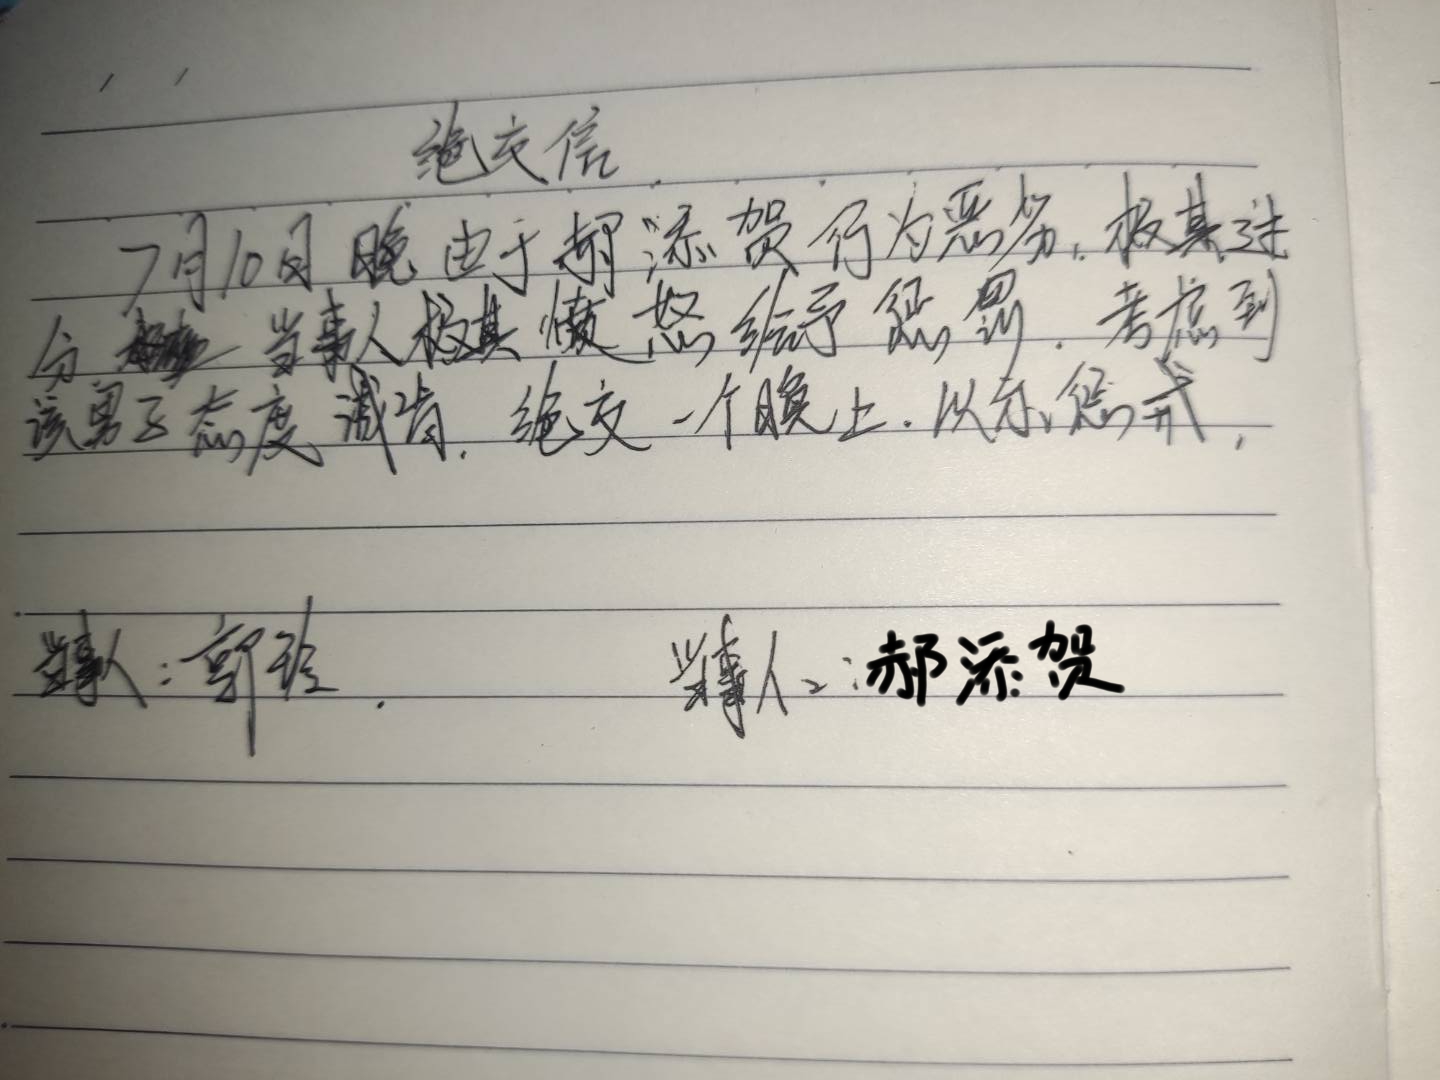 绝交信
7月10日晚由于郝添贺行为恶劣,极其过
分 当事人极其愤怒给予惩罚.考虑到
该男子态度诚肯.绝交一个晚上.以示惩戒,
当事人:郭玲. 当事人::郝添贺